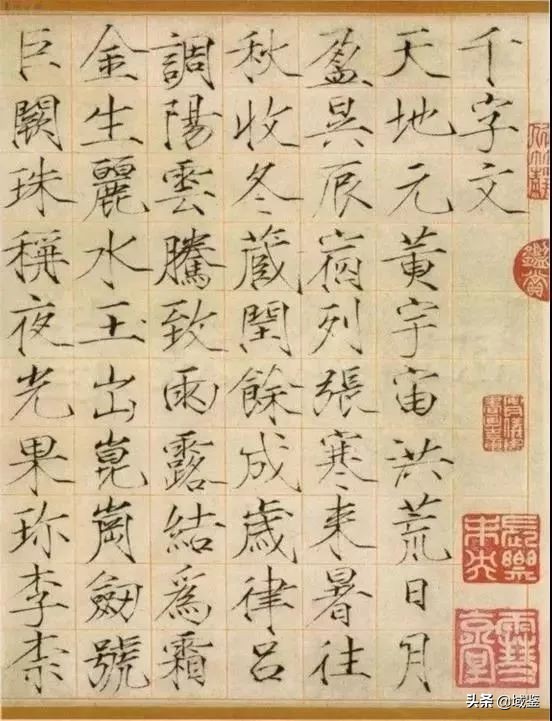 千字文
天地元黄宇宙洪荒日月
盈昃辰宿列張寒来暑往
秋收冬蔵閏餘成歳律呂
調陽雲騰致雨露結爲霜
金生麗水玉出崑崗劔號
巨闕珠稱夜光果珎李柰
鑑賞
头条 @域鉴